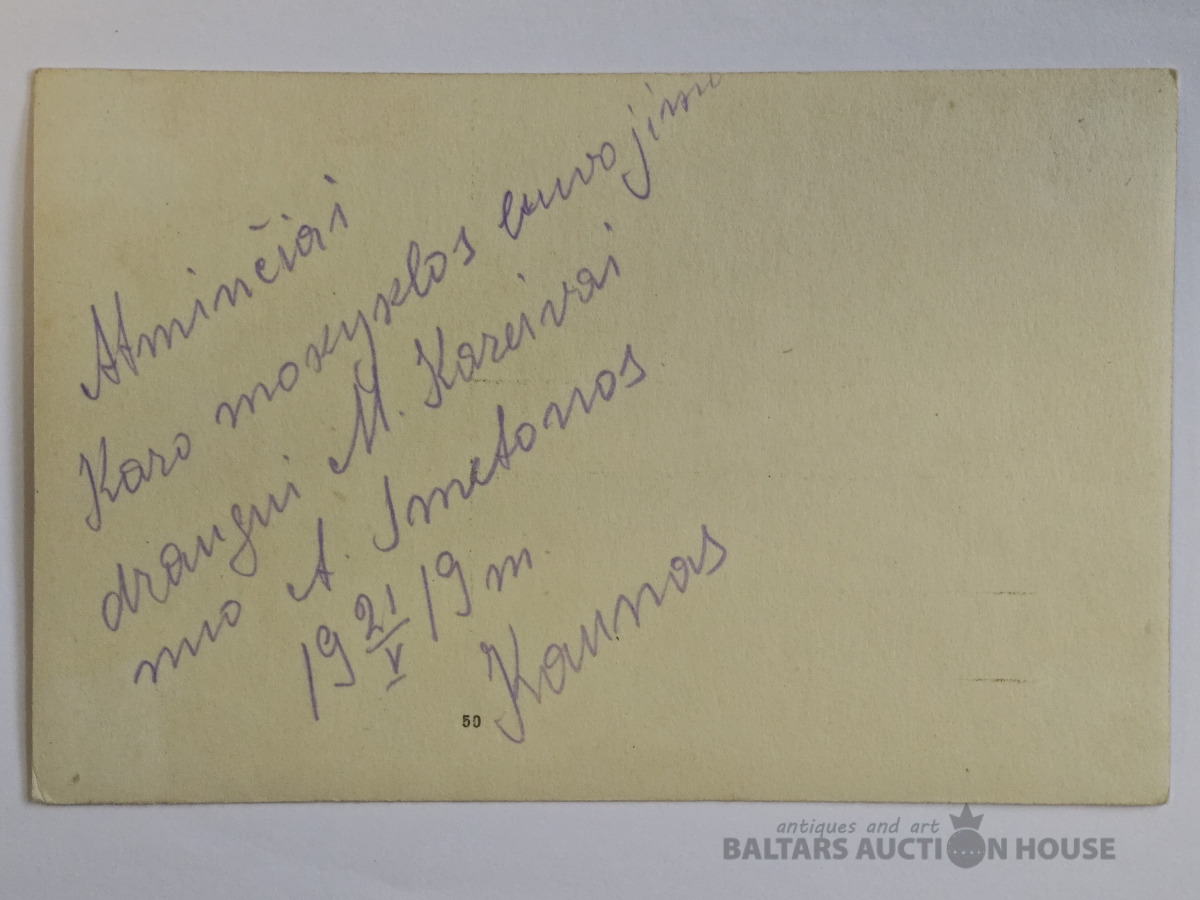 Atminčiai
Karo mokyklos
draugui M. Kareivai
nuo A. Smetonos
19 21/V 19 m.
Kaunas
50
antiques and art
BALTARS AUCTION HOUSE